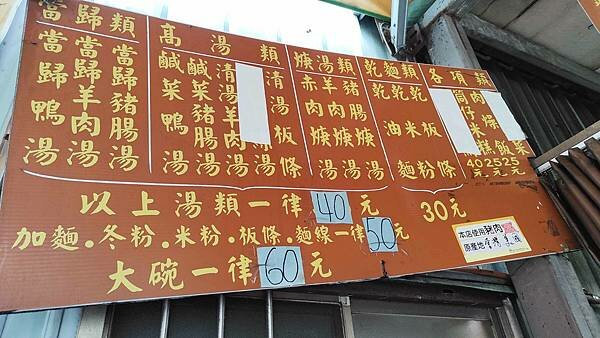 當歸類
當歸鴨湯
當歸羊肉湯
當歸豬腸湯
高湯類
鹹菜鴨湯
鹹菜豬腸湯
清湯羊肉湯
清湯板條
焿湯類
赤肉焿湯
羊肉焿湯
豬肉焿湯
乾麵類
乾油麵
乾米粉
乾板條
各項類
筒仔米糕40元
肉燥飯25元
菜25元
以上湯類一律40元
30元
加麵.冬粉.米粉.板條.麵線一律50元
大碗一律60元
本店使用豬肉
原產地台灣